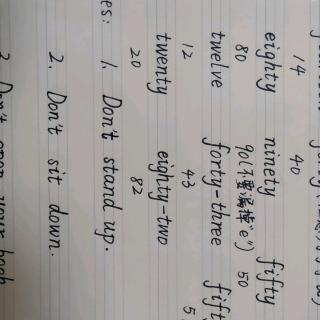 14 40
eighty ninety fifty
80 90(不要漏掉"e") 50
twelve forty-three fift
12 43 5
twenty eighty-two
20 82
es: 1. Don't stand up.
2. Don't sit down.
3. Don't open your book